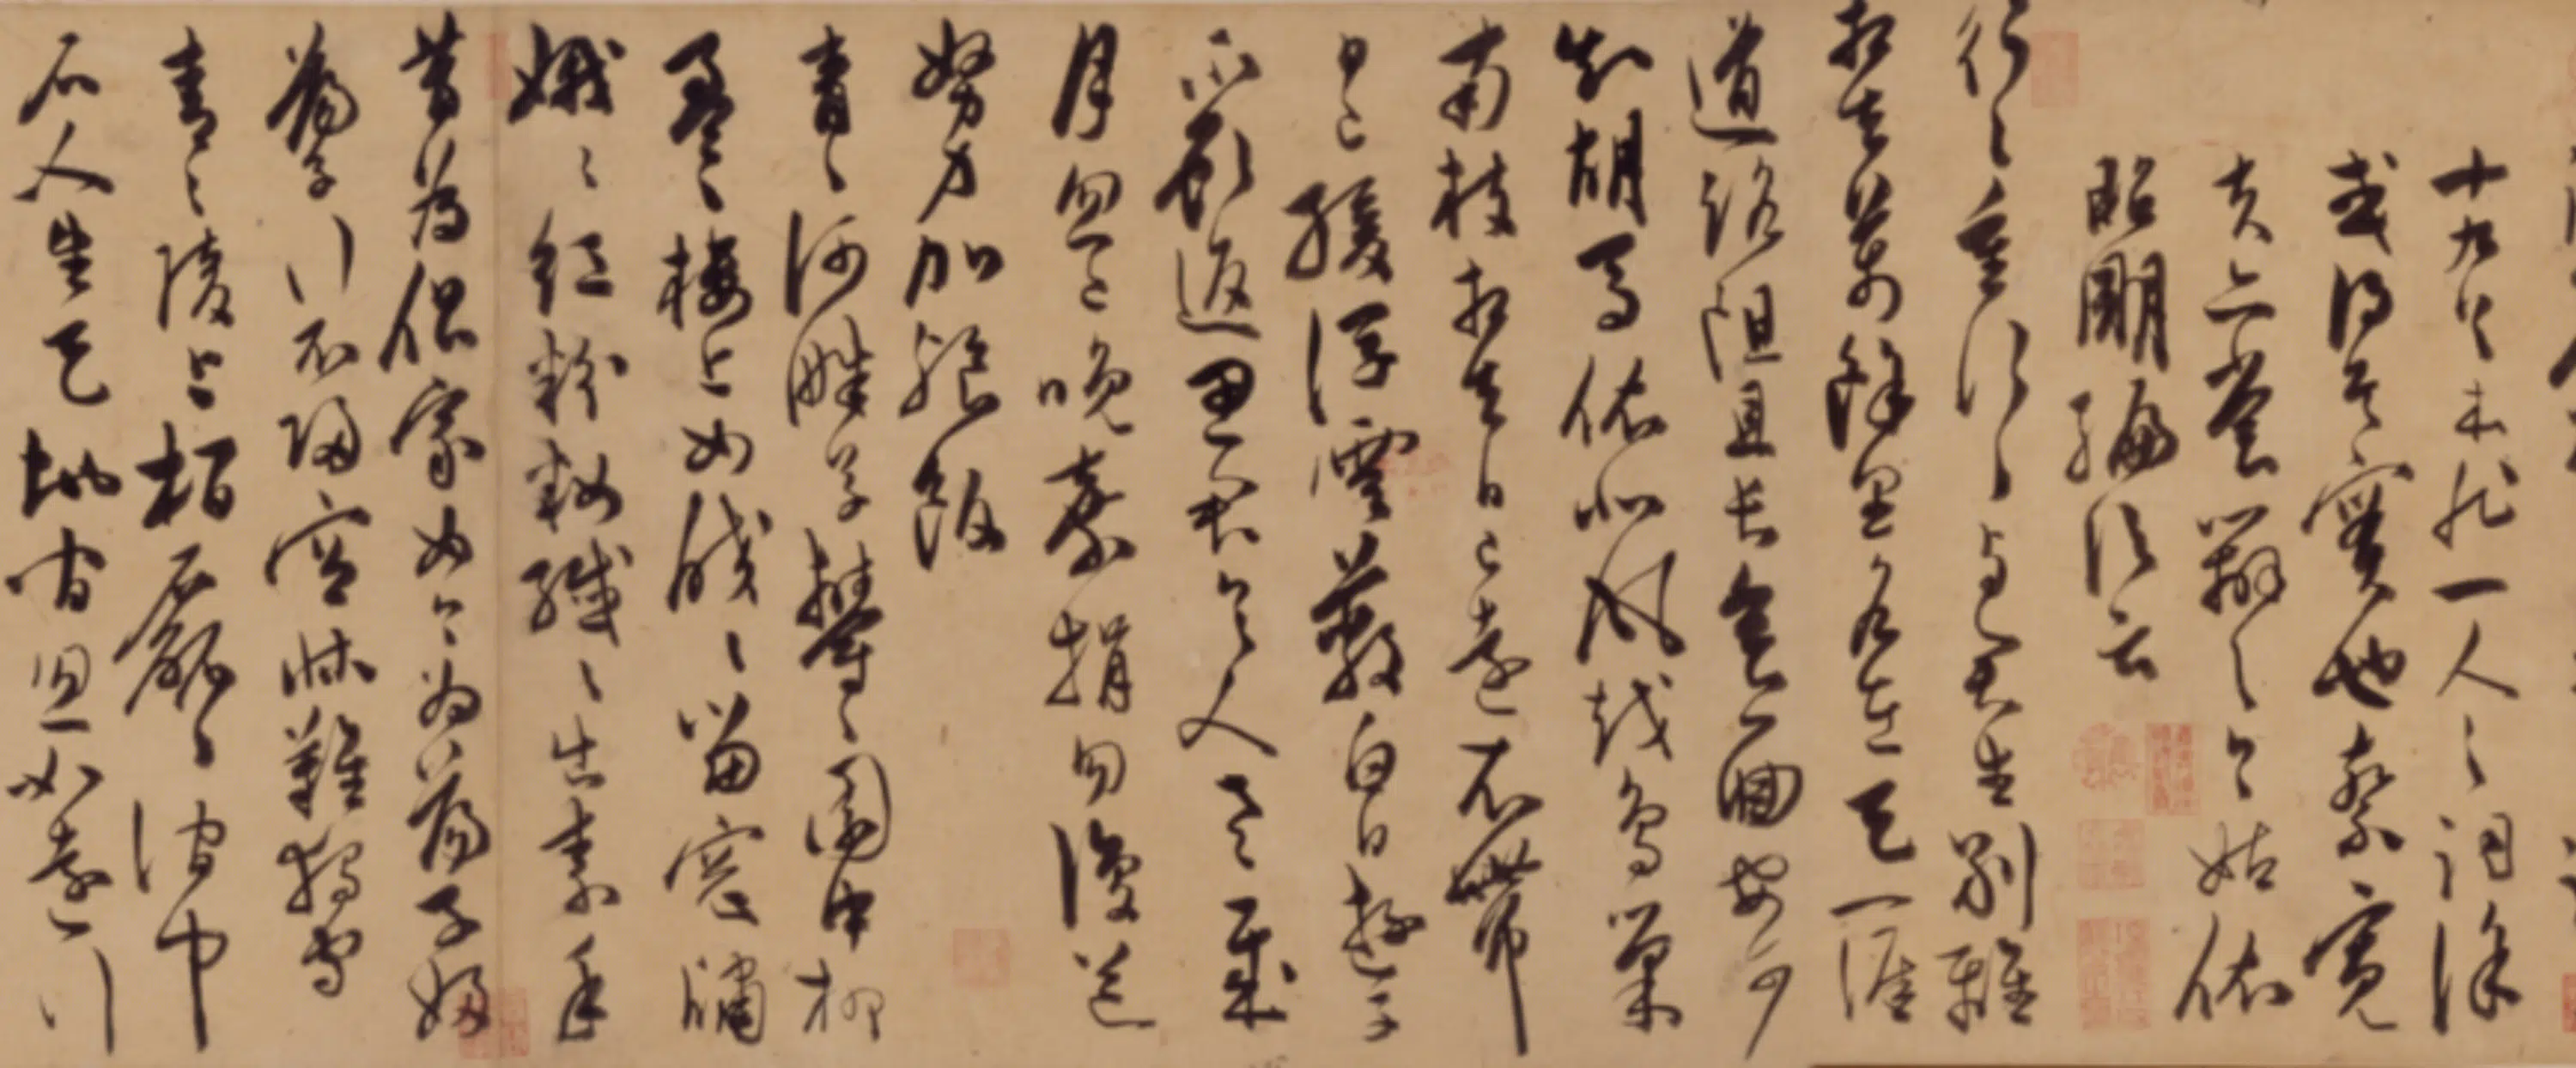 十九首本非一人之詞徐
或得其實也蔡寬
夫亦嘗辯之今姑依
昭明編次云
行行重行行與君生別離
相去萬餘里各在天一涯
道路阻且長會面安可
知胡馬依北風越鳥巢
南枝相去日已遠衣帶
日已緩浮雲蔽白日遊子
不顧返思君令人老歲
月忽已晚棄捐勿復道
努力加飧飯
青青河畔草鬱鬱園中柳
盈盈樓上女皎皎當窓牖
娥娥紅粉粧纖纖出素手
昔為倡家女今為蕩子婦
蕩子行不歸空床難獨守
青青陵上柏磊磊澗中
石人生天地間忽如遠行